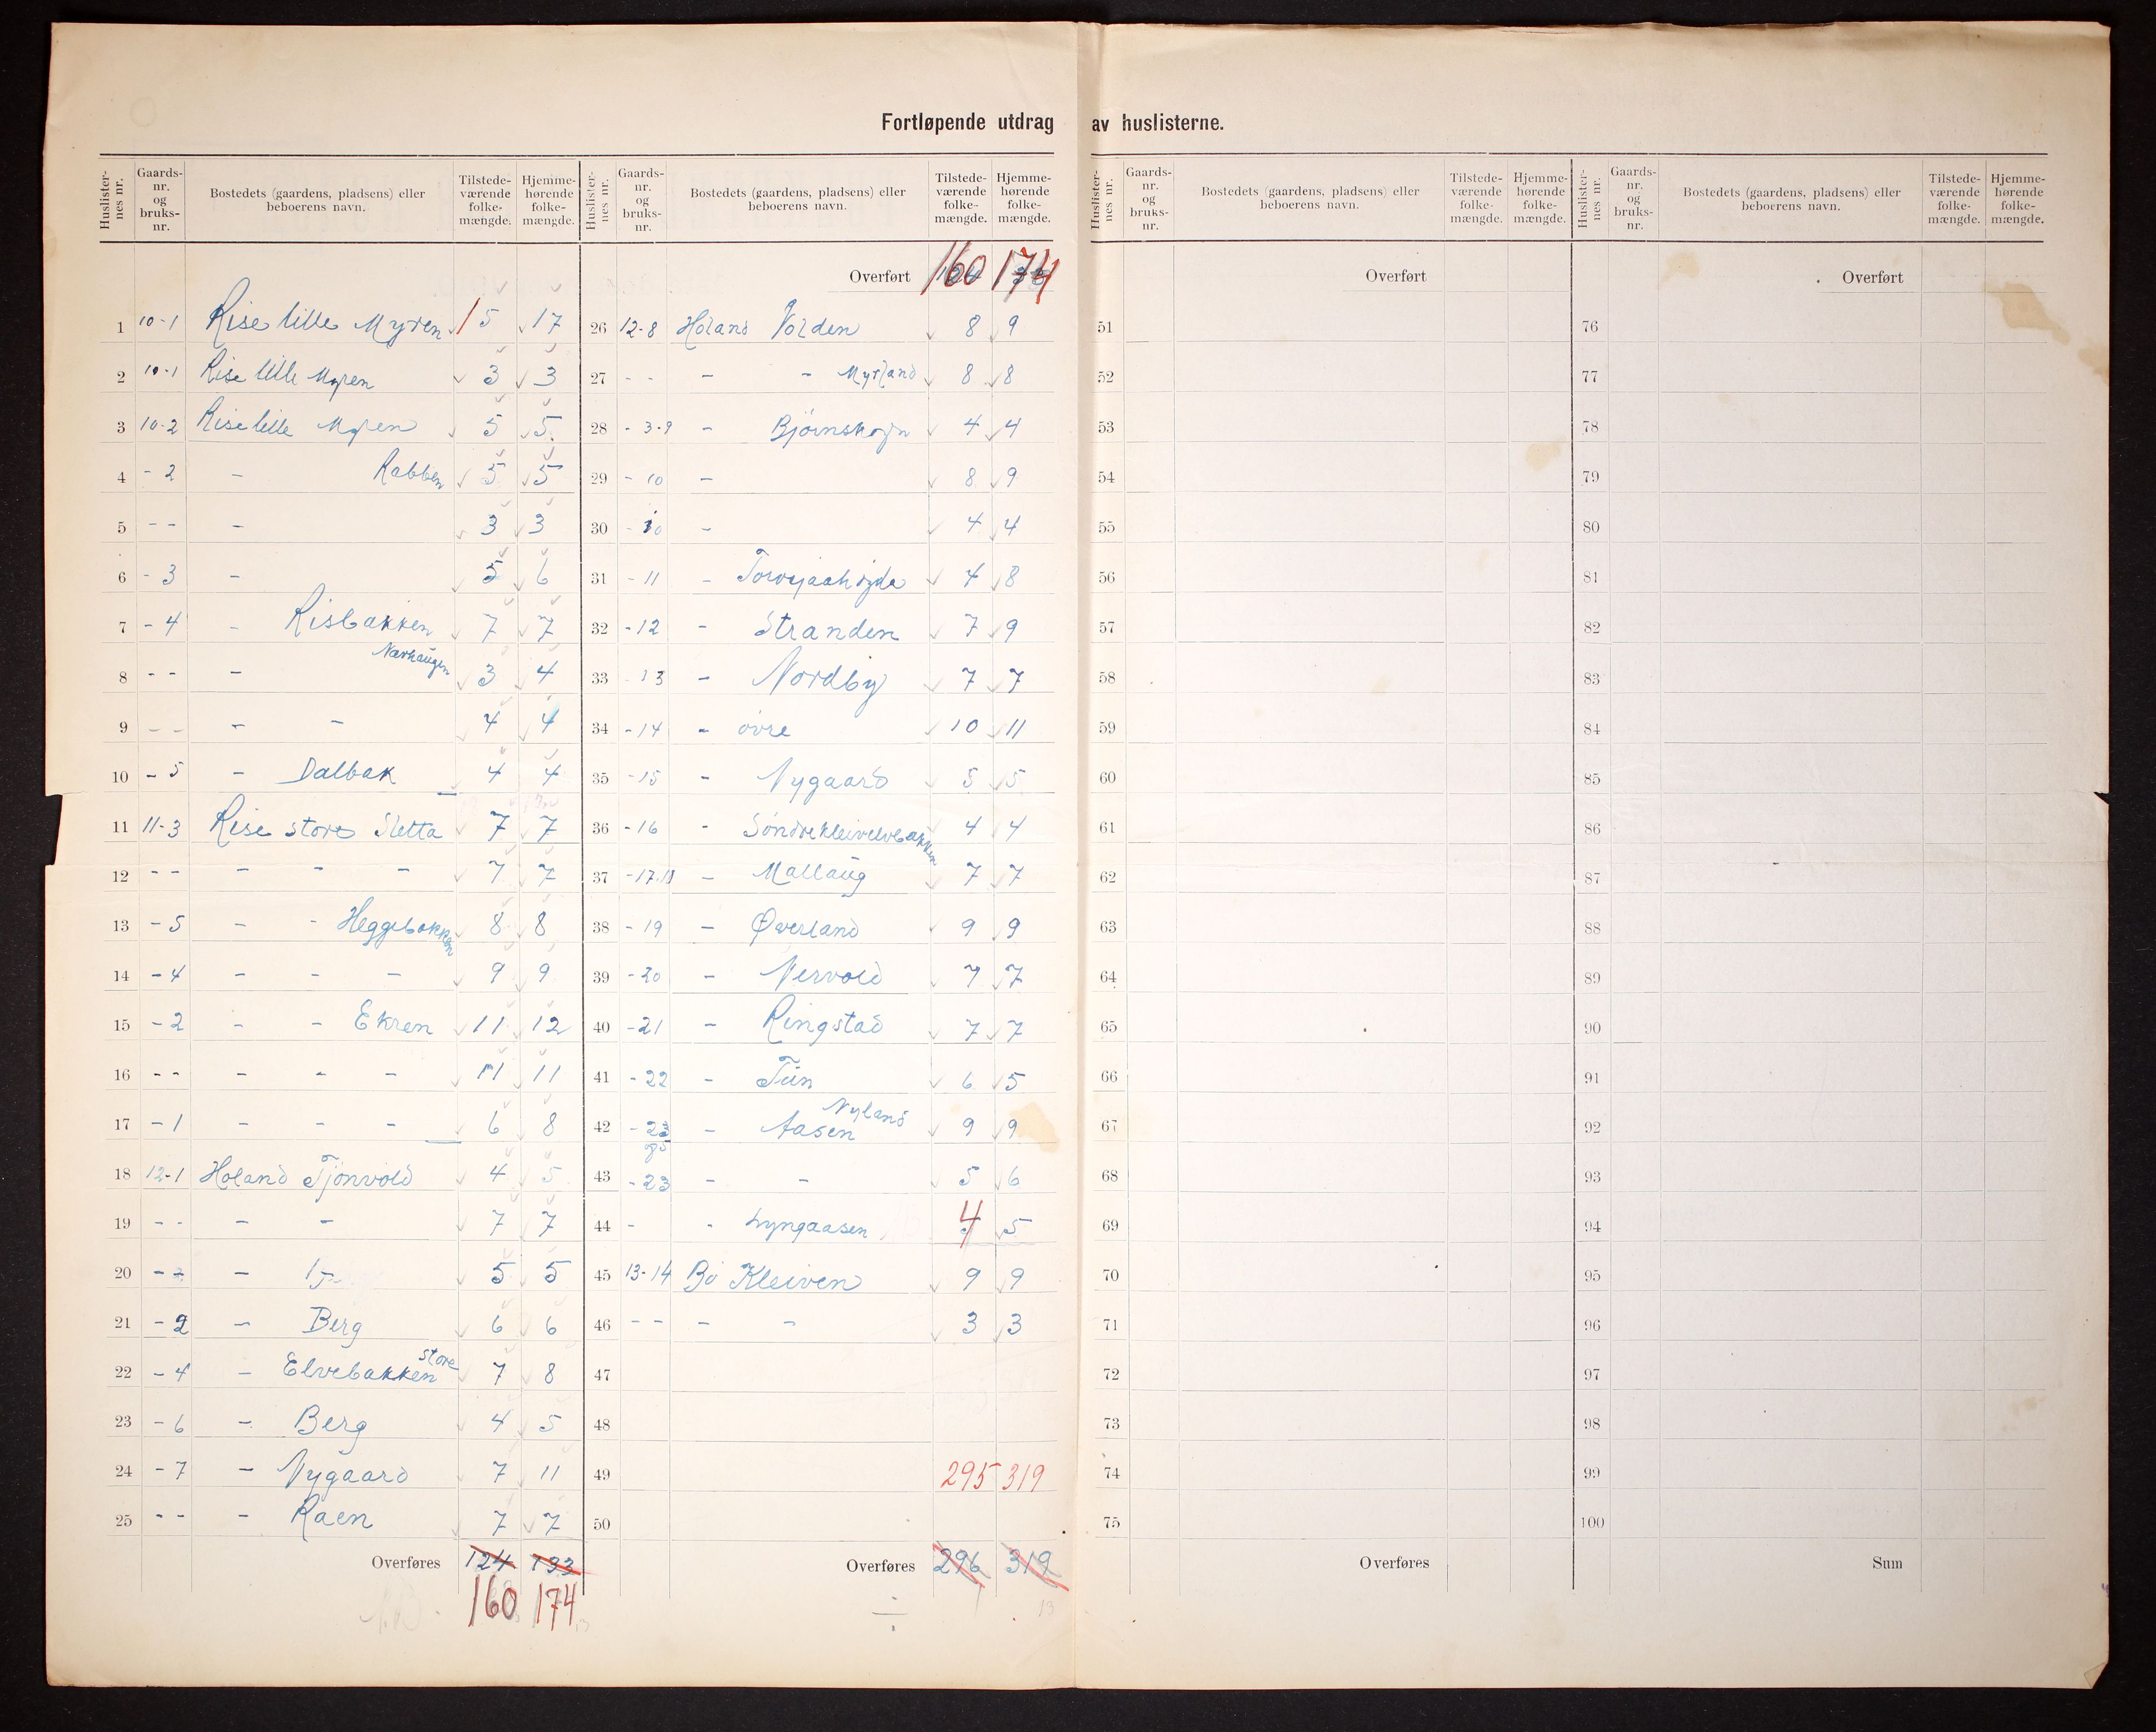 Fortløpende utdrag av huslisterne.
Huslister-nes nr. Gaards-nr. og bruks-nr. Bostedets (gaardens, pladsens) eller beboerens navn. Tilstede-værende folke-mængde. Hjemme-hørende folke-mængde.
1 10-1 Rise lille Myren 15 17
2 10-1 Rise lille Myren 3 3
3 10-2 Rise lille Myren 5 5
4 - 2 - Rabben 5 5
5 - - - 3 3
6 - 3 - 5 6
7 - 4 - Risbakken 7 7
8 - - - Nærhaugen 3 4
9 - - - - 4 4
10 - 5 - Dalbak 4 4
11 11-3 Rise store Sletta 7 7
12 - - - - - 7 7
13 - 5 - - Heggebakken 8 8
14 - 4 - - - 9 9
15 - 2 - - Ekren 11 12
16 - - - - - 11 11
17 - 1 - - - 6 8
18 12-1 Holand Tjønvold 4 5
19 - - - - 7 7
20 - - - 5 5
21 - 2 - Berg 6 6
22 - 4 - Elvebakken store 7 8
23 - 6 - Berg 4 5
24 - 7 - Nygaard 7 11
25 - - - Raen 7 7
Overføres 124 133
160 174
Huslister-nes nr. Gaards-nr. og bruks-nr. Bostedets (gaardens, pladsens) eller beboerens navn. Tilstede-værende folke-mængde. Hjemme-hørende folke-mængde.
Overført 160 174
26 12-8 Holand Volden 8 9
27 - - - - Myrland 8 8
28 - 3-9 - Bjørnskogn 4 4
29 - 10 - 8 9
30 - 10 - 4 4
31 - 11 - 4 8
32 - 12 - Stranden 7 9
33 - 13 - Nordby 7 7
34 - 14 - øvre 10 11
35 - 15 - Nygaard 5 5
36 - 16 - Søndrekleivelvbakken 4 4
37 - 17.18 - Mallaug 7 7
38 - 19 - Øverland 9 9
39 - 20 - Nervold 7 7
40 - 21 - Ringstad 7 7
41 - 22 - Tun 6 5
42 - 23 - Aasen Nyland 9 9
43 - 23 - - 5 6
44 - - Lyngaasen 4 5
45 13-14 Bø Kleiven 9 9
46 - - - - 3 3
47
48
49 295 319
50
Overføres 296 319
Huslister-nes nr. Gaards-nr. og bruks-nr. Bostedets (gaardens, pladsens) eller beboerens navn. Tilstede-værende folke-mængde. Hjemme-hørende folke-mængde.
Overført
51
52
53
54
55
56
57
58
59
60
61
62
63
64
65
66
67
68
69
70
71
72
73
74
75
Overføres
Huslister-nes nr. Gaards-nr. og bruks-nr. Bostedets (gaardens, pladsens) eller beboerens navn. Tilstede-værende folke-mængde. Hjemme-hørende folke-mængde.
Overført
76
77
78
79
80
81
82
83
84
85
86
87
88
89
90
91
92
93
94
95
96
97
98
99
100
Sum